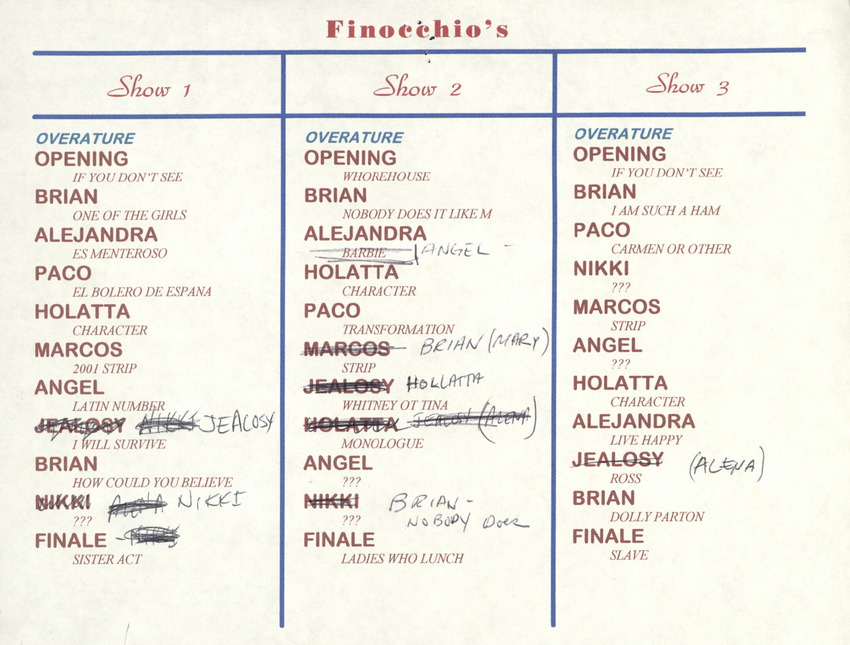 Finocchio's
Show 1
OVERATURE
OPENING
IF YOU DON'T SEE
BRIAN
ONE OF THE GIRLS
ALEJANDRA
ES MENTEROSO
PACO
EL BOLERO DE ESPANA
HOLATTA
CHARACTER
MARCOS
2001 STRIP
ANGEL
LATIN NUMBER
JEALOSY NIKKI JEALOSY
I WILL SURVIVE
BRIAN
HOW COULD YOU BELIEVE
NIKKI NIKKI
???
FINALE
SISTER ACT
Show 2
OVERATURE
OPENING
WHOREHOUSE
BRIAN
NOBODY DOES IT LIKE M
ALEJANDRA
BARBIE ANGEL -
HOLATTA
CHARACTER
PACO
TRANSFORMATION
MARCOS BRIAN (MARY)
STRIP
JEALOSY HOLLATTA
WHITNEY OT TINA
HOLATTA JEALOSY (ALENA)
MONOLOGUE
ANGEL
???
NIKKI BRIAN -
??? NOBODY DOES
FINALE
LADIES WHO LUNCH
Show 3
OVERATURE
OPENING
IF YOU DON'T SEE
BRIAN
I AM SUCH A HAM
PACO
CARMEN OR OTHER
NIKKI
???
MARCOS
STRIP
ANGEL
???
HOLATTA
CHARACTER
ALEJANDRA
LIVE HAPPY
JEALOSY (ALENA)
ROSS
BRIAN
DOLLY PARTON
FINALE
SLAVE